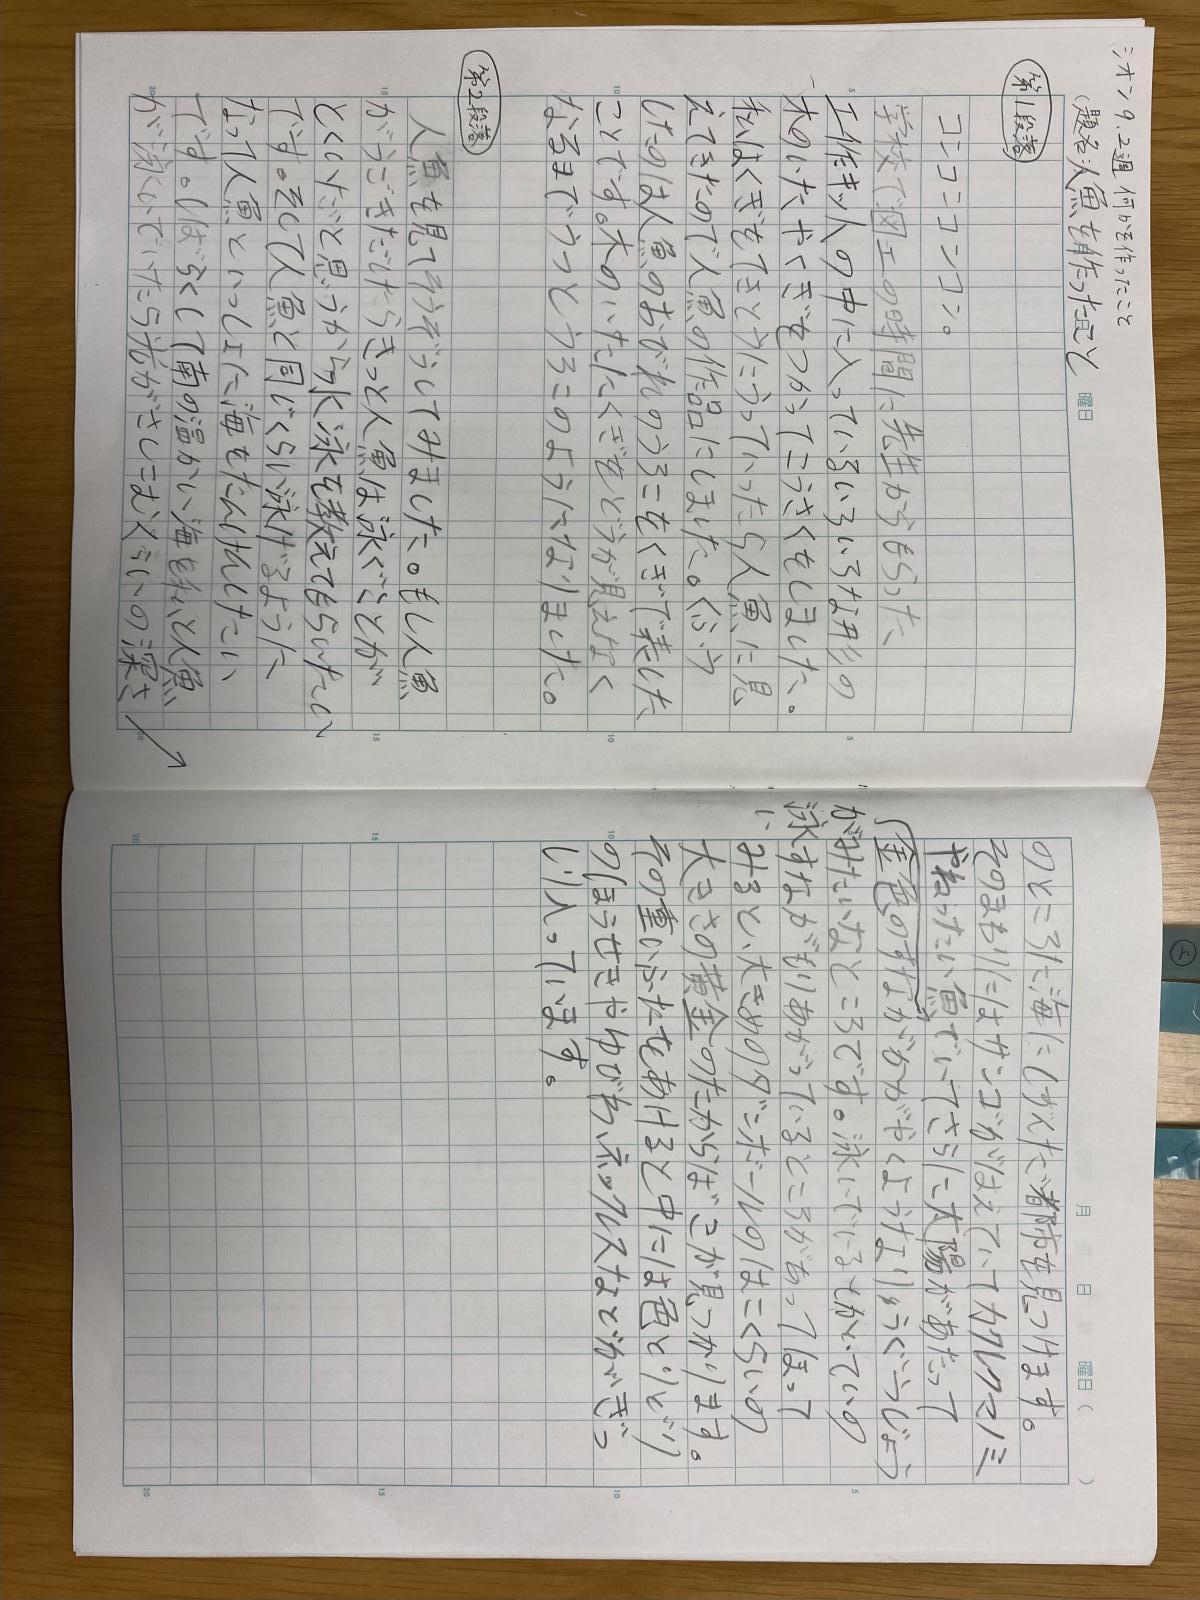 シオン9.2週 何かを作ったこと
(題名)人魚を作ったこと
曜日
第1段落
コンコンコンコン。
学校で図工の時間に先生からもらった
工作キットの中に入っているいろいろな形の
木のいたやくぎをつかってこうさくをしました。
私はくぎをてきとうにうっていったら人魚に見
えてきたので人魚の作品にしました。くふう
したのは人魚のおびれのうろこをくぎで表した
ことです。木のいたにくぎをどうが見えなく
なるまでうつとうろこのようになりました。
第2段落
人魚を見てそうぞうしてみました。もし人魚
がうごきだしたらきっと人魚は泳ぐことが
とくいだと思うから水泳を教えてもらいたい
です。そして人魚と同じくらい泳げるように
なって人魚といっしょに海をたんけんしたい
です。しばらくして南の温かい海を私と人魚
が泳いでいたら光がさしこむくらいの深さ
のところに海にしずんだ都市を見つけます。
そのまわりにはサンゴがはえていてカクレクマノミ
やねったい魚がいてさらに太陽があたって
金色のすながかがやくようなりゅうぐうじょう
がみたいなところです。泳いでいるとかいていの
すながもりあがっているところがあってほって
みると、大きめのダンボールのはこくらいの
大きさの黄金のたからばこが見つかります。
その重いふたをあけると中には色とりどり
のほうせきやゆびわ、ネックレスなどがぎっ
しり入っています。
月 日 曜日( )